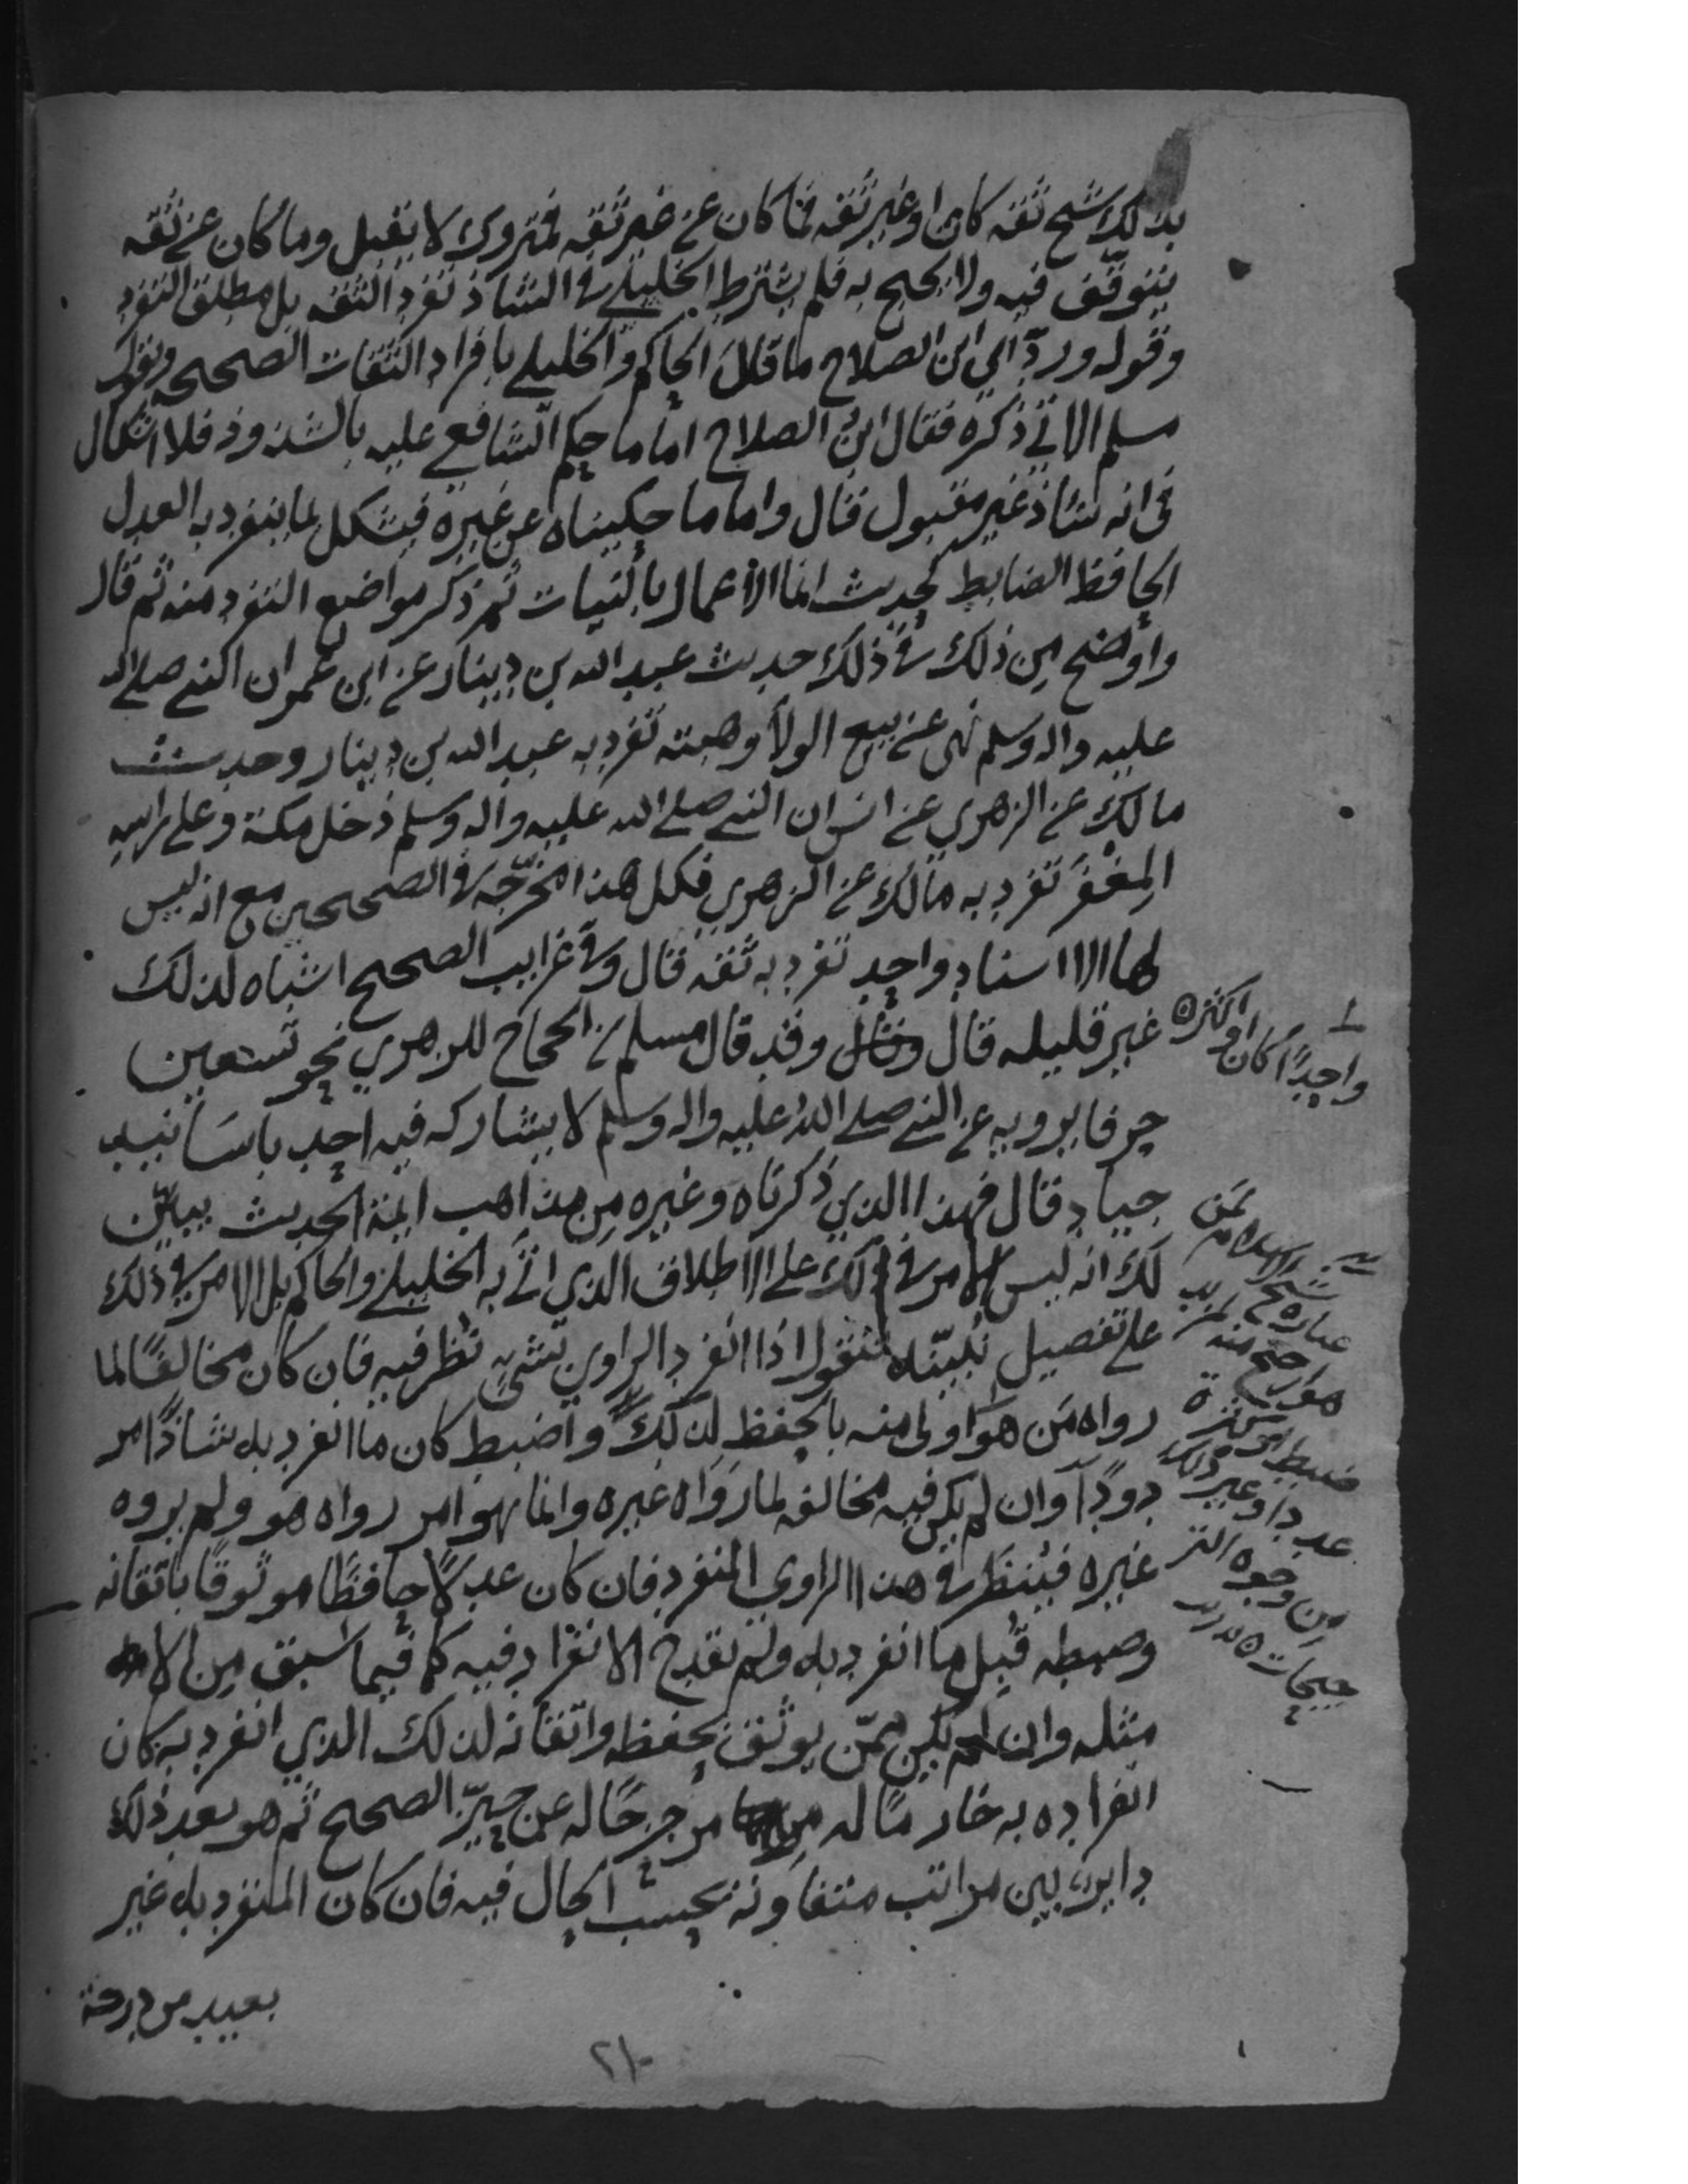 بذلك شيخ ثقه كان او غير ثقه فما كان عن غير ثقه فمتروك لا يقبل وما كان عن ثقه
يتوقف فيه ولا يحتج به فلم يشترط الخليلي في الشاذ تفرد الثقه بل مطلق التفرد
وقوله ورد اي ابن الصلاح ما قال الحاكم والخليلي بافراد الثقات الصحيحه وبقول
مسلم الاتي ذكره فقال ابن الصلاح اما ما حكم الشافعي عليه بالشذوذ فلا اشكال
في انه شاذ غير مقبول قال واما ما حكيناه عن غيره فيشكل لما ينفرد به العدل
الحافظ الضابط كحديث انما الاعمال بالنيات ثم ذكر مواضع التفرد منه ثم قال
واوضح من ذلك في ذلك حديث عبد الله بن دينار عن ابن عمر ان النبي صلى الله
عليه واله وسلم نهى عن بيع الولا وهبته تفرد به عبد الله بن دينار وحديث
مالك عن الزهري عن انس ان النبي صلى الله عليه واله وسلم دخل مكة وعلى راسه
المغفر تفرد به مالك عن الزهري فكل هذا مخرجه في الصحيحين مع انه ليس
لها الا اسناد واحد تفرد به ثقه قال وفي غرايب الصحيح اشباه لذلك
غير قليله قال وقد قال مسلم بن الحجاج للزهري نحو تسعين
حرفا يرويه عن النبي صلى الله عليه واله وسلم لا يشاركه فيه احد باسانيد
جياد قال فهذا الذي ذكرناه وغيره من مذاهب ايمة الحديث يبين
لك انه ليس الامر في ذلك على الاطلاق الذي اتى به الخليلي والحاكم بل الامر في ذلك
على تفصيل نبينه فنقول اذا انفرد الراوي بشيء نظر فيه فان كان مخالفا لما
رواه من هو اولى منه بالحفظ لذلك واضبط كان ما انفرد به شاذا مر
دودا وان لم يكن فيه مخالفه لما رواه غيره وانما هو امر رواه هو ولم يروه
غيره فينظر في هذا الراوي المنفرد فان كان عدلا حافظا موثوقا باتقانه
وضبطه قبل ما انفرد به ولم يقدح الانفراد فيه كما فيما سبق من الامثله
مثله وان لم يكن ممن يوثق بحفظه واتقانه لذلك الذي انفرد به كان
انفراده به خارما له مزحزحا له عن حيز الصحيح ثم هو بعد ذلك
داير بين مراتب متفاوته بحسب الحال فيه فان كان المنفرد به غير
بعيد من درجة
واحدا كان او اكثر ه
عباره شيخ
هو ارجح منه لمزيد
ضبط او كثرة
عدد او غير ذلك
من وجوه التر
جيحات ه
٢١٠